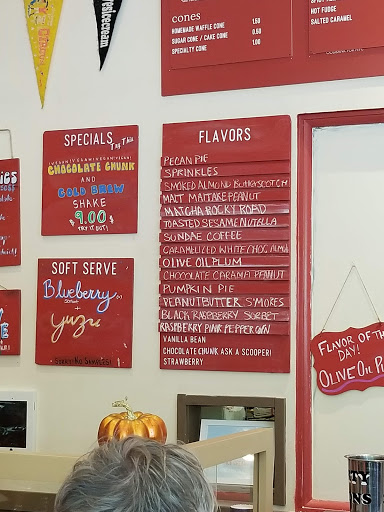 icecream
cones
HOMEMADE WAFFLE CONE 1.50
SUGAR CONE / CAKE CONE 0.50
SPECIALTY CONE 1.00
HOT FUDGE
SALTED CARAMEL
SPECIALS
Try This
CHOCOLATE CHUNK
AND
COLD BREW
SHAKE
9.00
TRY IT OUT!
SOFT SERVE
Blueberry (V)
+
Yuzu
FLAVORS
PECAN PIE
SPRINKLES
SMOKED ALMOND BUTTERSCOTCH
MALT MAITAKE PEANUT
MATCHA ROCKY ROAD
TOASTED SESAME NUTELLA
SUNDAE COFFEE
CARAMELIZED WHITE CHOC ALMD
OLIVE OIL PLUM
CHOCOLATE CARAMEL PEANUT
PUMPKIN PIE
PEANUT BUTTER S'MORES
BLACK RASPBERRY SORBET
RASPBERRY PINK PEPPERCORN
VANILLA BEAN
CHOCOLATE CHUNK ASK A SCOOPER!
STRAWBERRY
FLAVOR OF THE
DAY!
OLIVE OIL PL
TY
RS